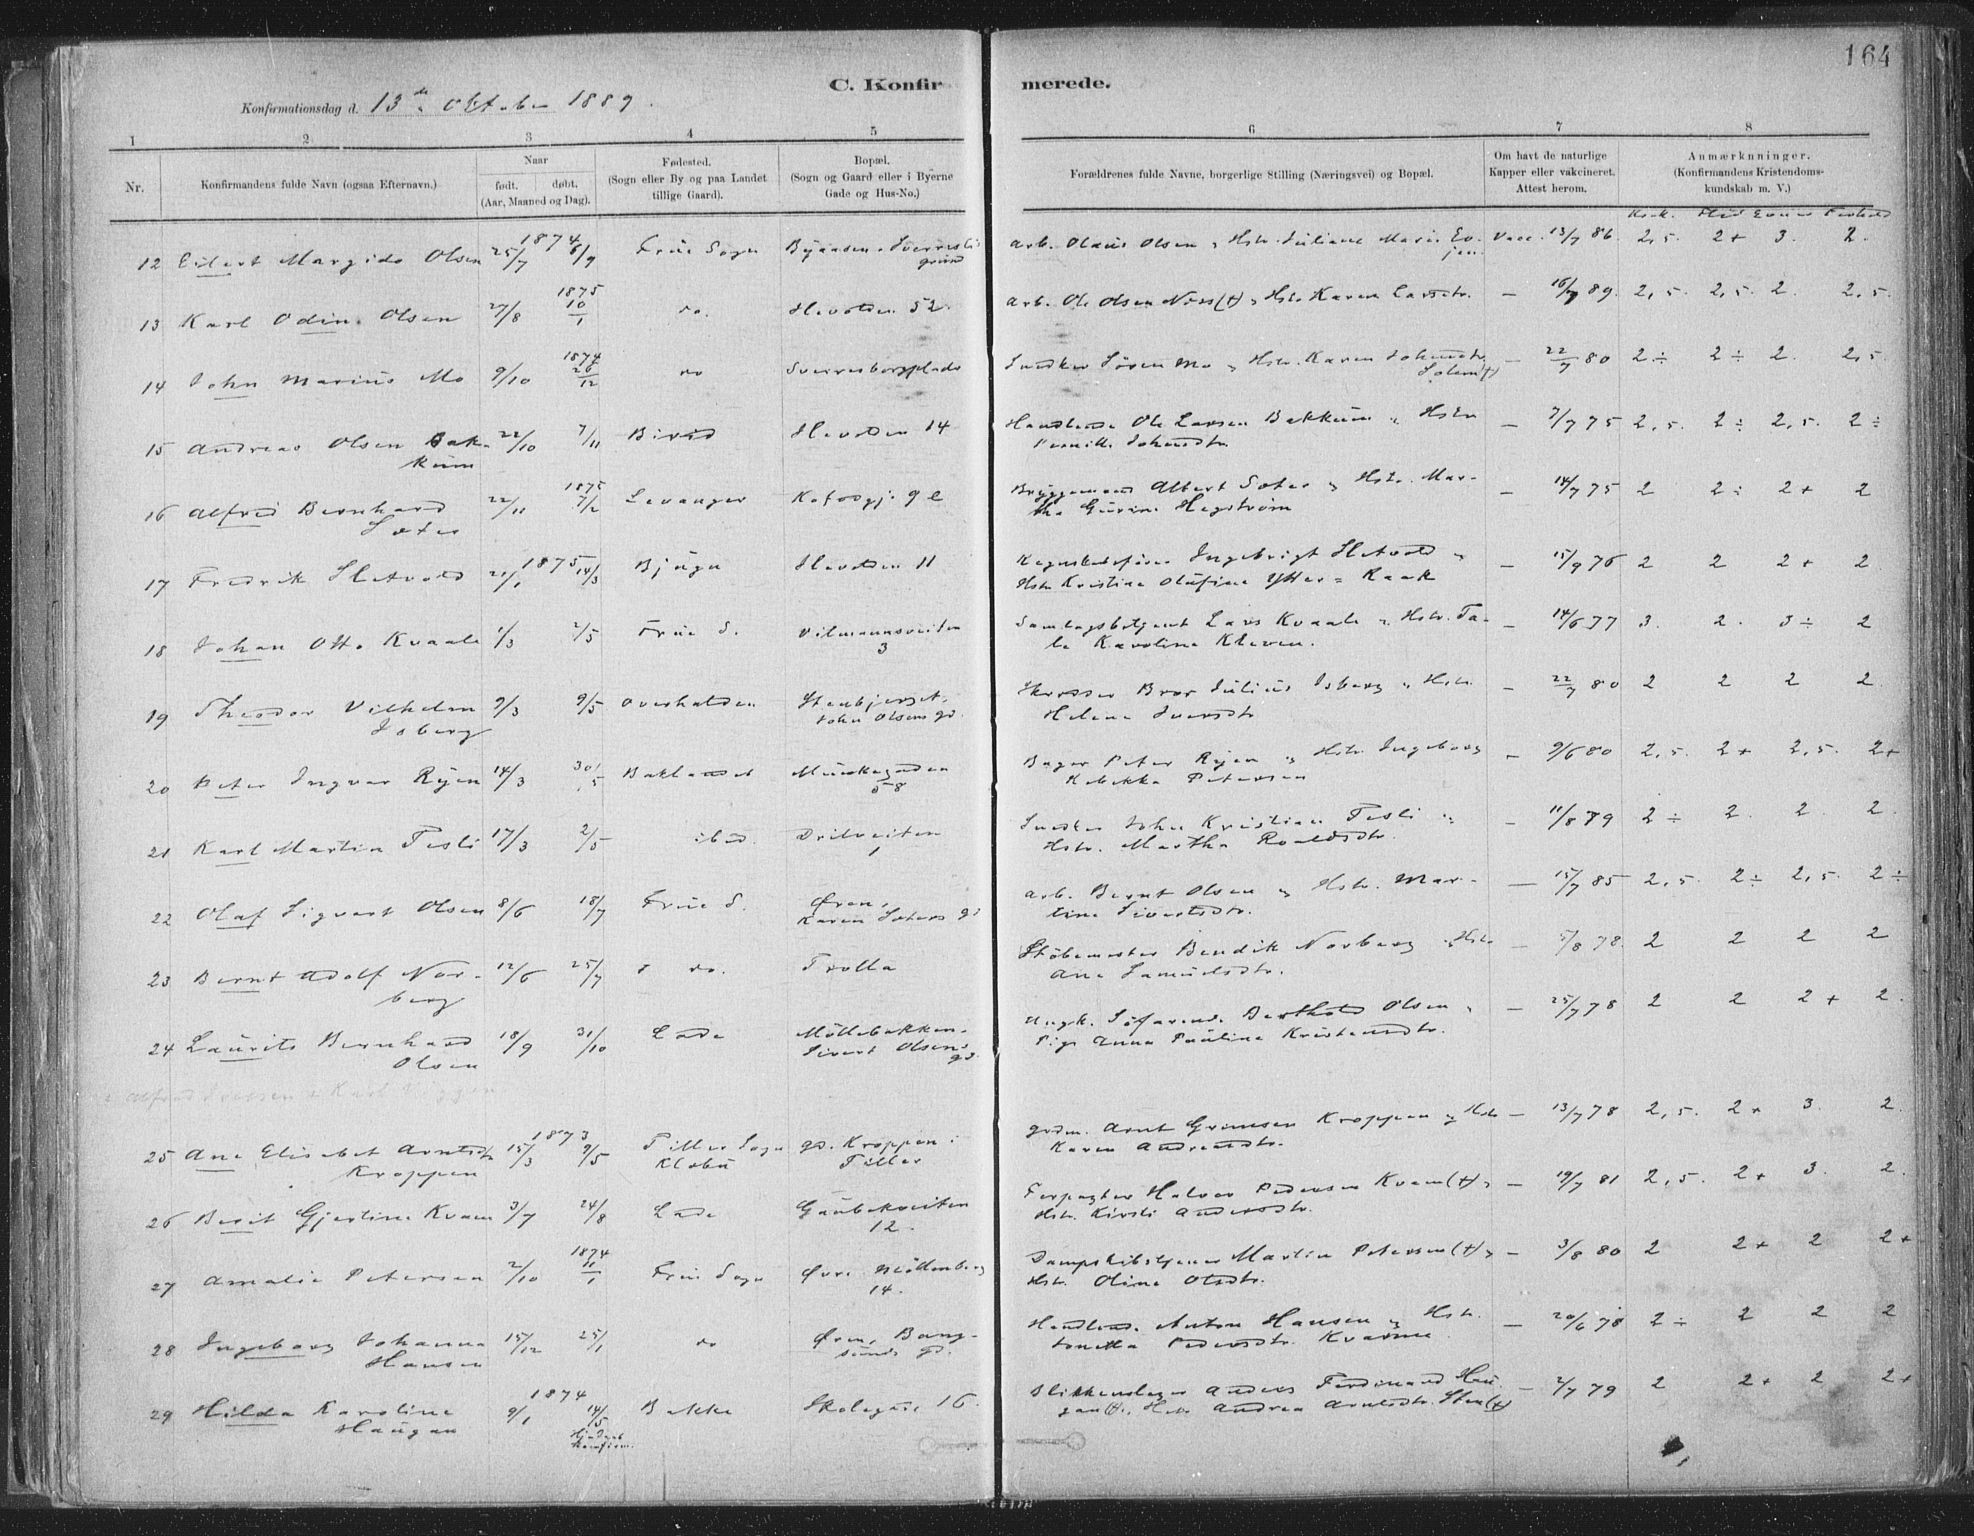 164
C. Konfirmerede.
Konfirmationsdag d. 13de Oktober 1889.
1 2 3 4 5 6 7 8
Nr. Konfirmandens fulde Navn (ogsaa Efternavn.) Naar født. døbt. (Aar, Maaned og Dag). Fødested. (Sogn eller By og paa Landet tillige Gaard). Bopæl. (Sogn og Gaard eller i Byerne Gade og Hus-No.) Forældrenes fulde Navne, borgerlige Stilling (Næringsvei) og Bopæl. Om havt de naturlige Kapper eller vakcineret. Attest herom. Anmærkninger. (Konfirmandens Kristendomskundskab m. V.)
Flid Evner Forhold
12 Eilert Margido Olsen 1874 25/7 8/9 Frue Sogn Byaasen, Sverresli grind Arb. Olaus Olsen Hstr. Juliane Marie Evjen Vacc. 13/7 86. 2,5. 2+ 3. 2.
13 Karl Odin Olsen 27/8 1875 10/1 do. Ilevolden 52. Arb. Ole Olsen Næss (†) Hstr. Karen Larsdtr. — 16/7 89. 2,5. 2,5. 2. 2,5.
14 John Marius Mo 9/10 1874 26/12 do Sverresborgplads Snedker Søren Mo Hstr. Karen Johnsdtr. Solem (†) — 22/7 80 2÷ 2÷ 2. 2,5
15 Andreas Olsen Bakkum 22/10 7/11 Ilevolden 14 Handlende Ole Larsen Bakkum Hstr. Pernille Johnsdtr. — 7/7 75 2,5. 2÷ 2,5. 2÷
16 Alfred Bernhard Sæter 22/11 1875 7/2 Levanger 9 e Bryggemand Albert Sæter Hstr. Martha Gurine Hegstrøm — 14/7 75 2 2÷ 2+ 2
17 Fredrik Sletvold 21/1 1875 14/3 Bjugn Ilevolden 11 Regnskabsfører Ingebrigt Sletvold Hstr. Kristine Olufine Ytter=Raak — 15/9 76 2 2 2+ 2
18 Johan Otto Kvaale 1/3 2/5 Frue S. Vilmannsveiten 3 Lars Kvaale Hstr. Karoline Kleven. — 14/6 77 3. 2. 3÷ 2
19 Theodor Vilhelm Isberg 9/3 9/5 Overhalden Stenbjerget, John Olsens gd. Bror Julius Isberg Hstr. Helene Iversdtr — 22/7 80 2 2 2 2
20 Peter Ingvar Ryen 14/3 30/5 Baklandet Munkegaden 58 Bager Peter Ryen Hstr. Ingeborg Rebekka Petersen — 9/6 80 2,5. 2+ 2,5. 2+
21 Karl Martin Fesli 17/3 2/5 ibid. Dritveiten 1 Snedker John Kristian Fesli Hstr. Martha Roaldsdtr. — 11/8 79 2÷ 2. 2. 2.
22 Olaf Sigvart Olsen 8/6 18/7 Frue S. Øren, Karen Sæters gd Arb. Bernt Olsen Hstr. Martine Sivertsdtr. — 15/7 85 2,5. 2÷ 2,5. 2÷
23 Bernt Adolf Norberg 12/6 25/7 do. Trolla Støbemester Bendik Norberg Hstr. Ane Samuelsdtr. — 5/8 78. 2 2 2 2
24 Laurits Bernhard Olsen 18/9 31/10 Lade Møllebakken, Sivert Olsens gd. Ungk. Søfarende Berthold Olsen Pige Anna Pauline Kristensdtr. — 25/7 78 2 2 2+ 2.
25 Ane Elisabet Arntsdtr Kroppen 1873 15/3 9/5 Tiller Sogn Klæbu gd. Kroppen i Tiller Grdm. Arnt Grimsen Kroppen Hstr Karen Andreasdtr. — 13/7 78 2,5. 2+ 3. 2.
26 Berit Gjertine Kvam 3/7 24/8 Lade Gaubekveiten 12. Halvor Pedersen Kvam (†) Hstr. Kirsti Andersdtr. — 19/7 81 2,5. 2+ 3. 2.
27 Amalie Petersen 2/10 1874 11/1 Frue Sogn Øvre Møllenberg 14. Dampskibstjener Martin Petersen (†) Hstr. Oline Olsdtr. — 3/8 80 2 2+ 2 2+
28 Ingeborg Johanna Hansen 15/12 25/1 do Øren, Bangsunds gd. Handlend. Anton Hansen Hstr. Jonetta Pedersdtr. Kvarme — 20/6 78 2÷ 2 2 2
29 Hilda Karoline Haugan 1874 9/1 14/5 Hjemmekonfirm. Bakke Skolegad. 16. Blikkenslager Anders Ferdinand Haugan (†), Hstr. Andrea Arntsdtr. Sten (†) — 2/7 79 2 2+ 2 2+